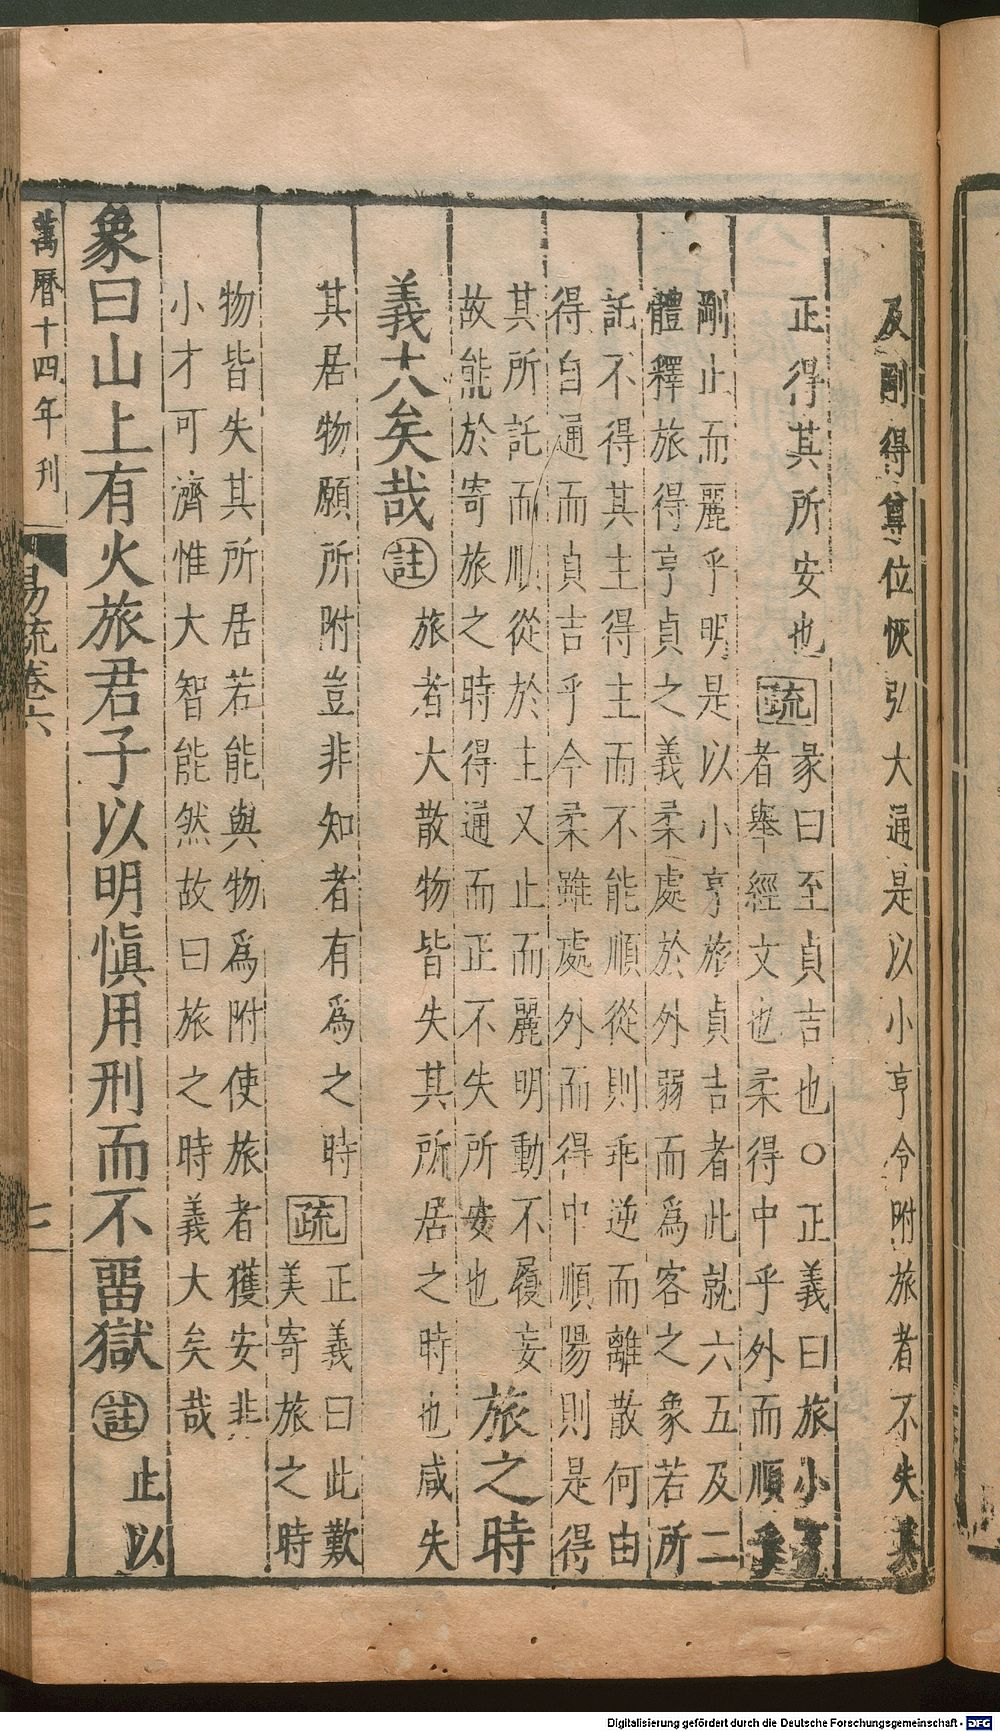 及剛得尊位恢弘大通是以小亨令附旅者不失其
正得其所安也 疏
彖曰至貞吉也○正義曰旅小亨
者舉經文也柔得中乎外而順乎
剛止而麗乎明是以小亨旅貞吉者此就六五及二
體釋旅得亨貞之義柔處於外弱而爲客之象若所
託不得其主得主而不能順從則乖逆而離散何由
得自通而貞吉乎今柔雖處外而得中順陽則是得
其所託而順從於主又止而麗明動不履妄
故能於寄旅之時得通而正不失所安也
旅之時
義大矣哉 註 旅者大散物皆失其所居之時也咸失
其居物願所附豈非知者有爲之時 疏
正義曰此歎
美寄旅之時
物皆失其所居若能與物爲附使旅者獲安非
小才可濟惟大智能然故曰旅之時義大矣哉
象曰山上有火旅君子以明愼用刑而不畱獄 註 止以
萬曆十四年刊
易疏卷六
Digitalisierung gefördert durch die Deutsche Forschungsgemeinschaft - DFG